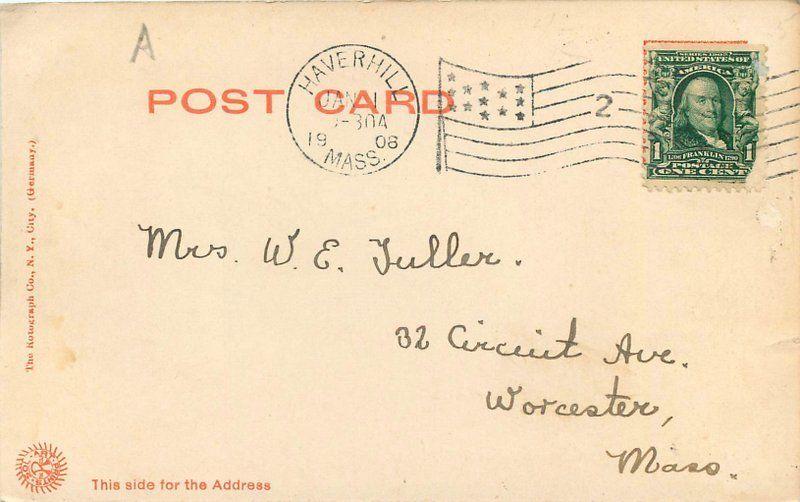 A
POST CARD
HAVERHILL
JAN 1
-30A
19 08
MASS.
2
SERIES 1902
UNITED STATES OF
AMERICA
1 1706 FRANKLIN 1790 1
POSTAGE
ONE CENT
Mrs. W. E. Fuller.
32 Circuit Ave.
Worcester,
Mass.
The Rotograph Co., N. Y., City. (Germany.)
This side for the Address